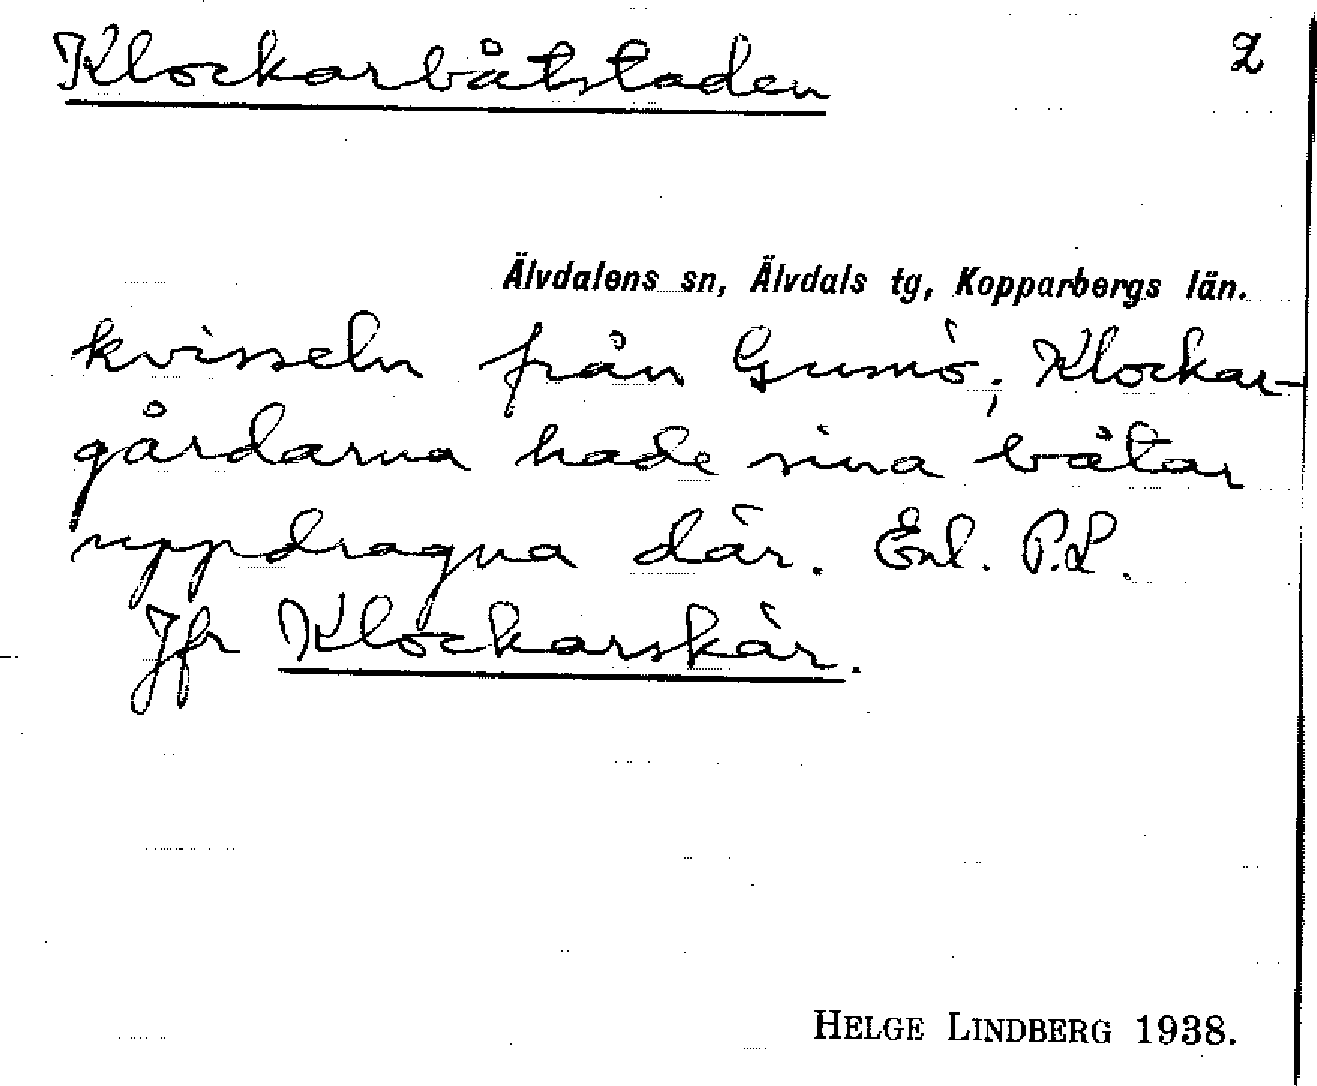 Klockarbåtstaden 2
Älvdalens sn, Älvdals tg, Kopparbergs län.
kvisseln från Gusnö; Klockar-
gårdarna hade sina båtar
uppdragna där. Enl. P.L.
Jfr Klockarskär.
HELGE LINDBERG 1938.